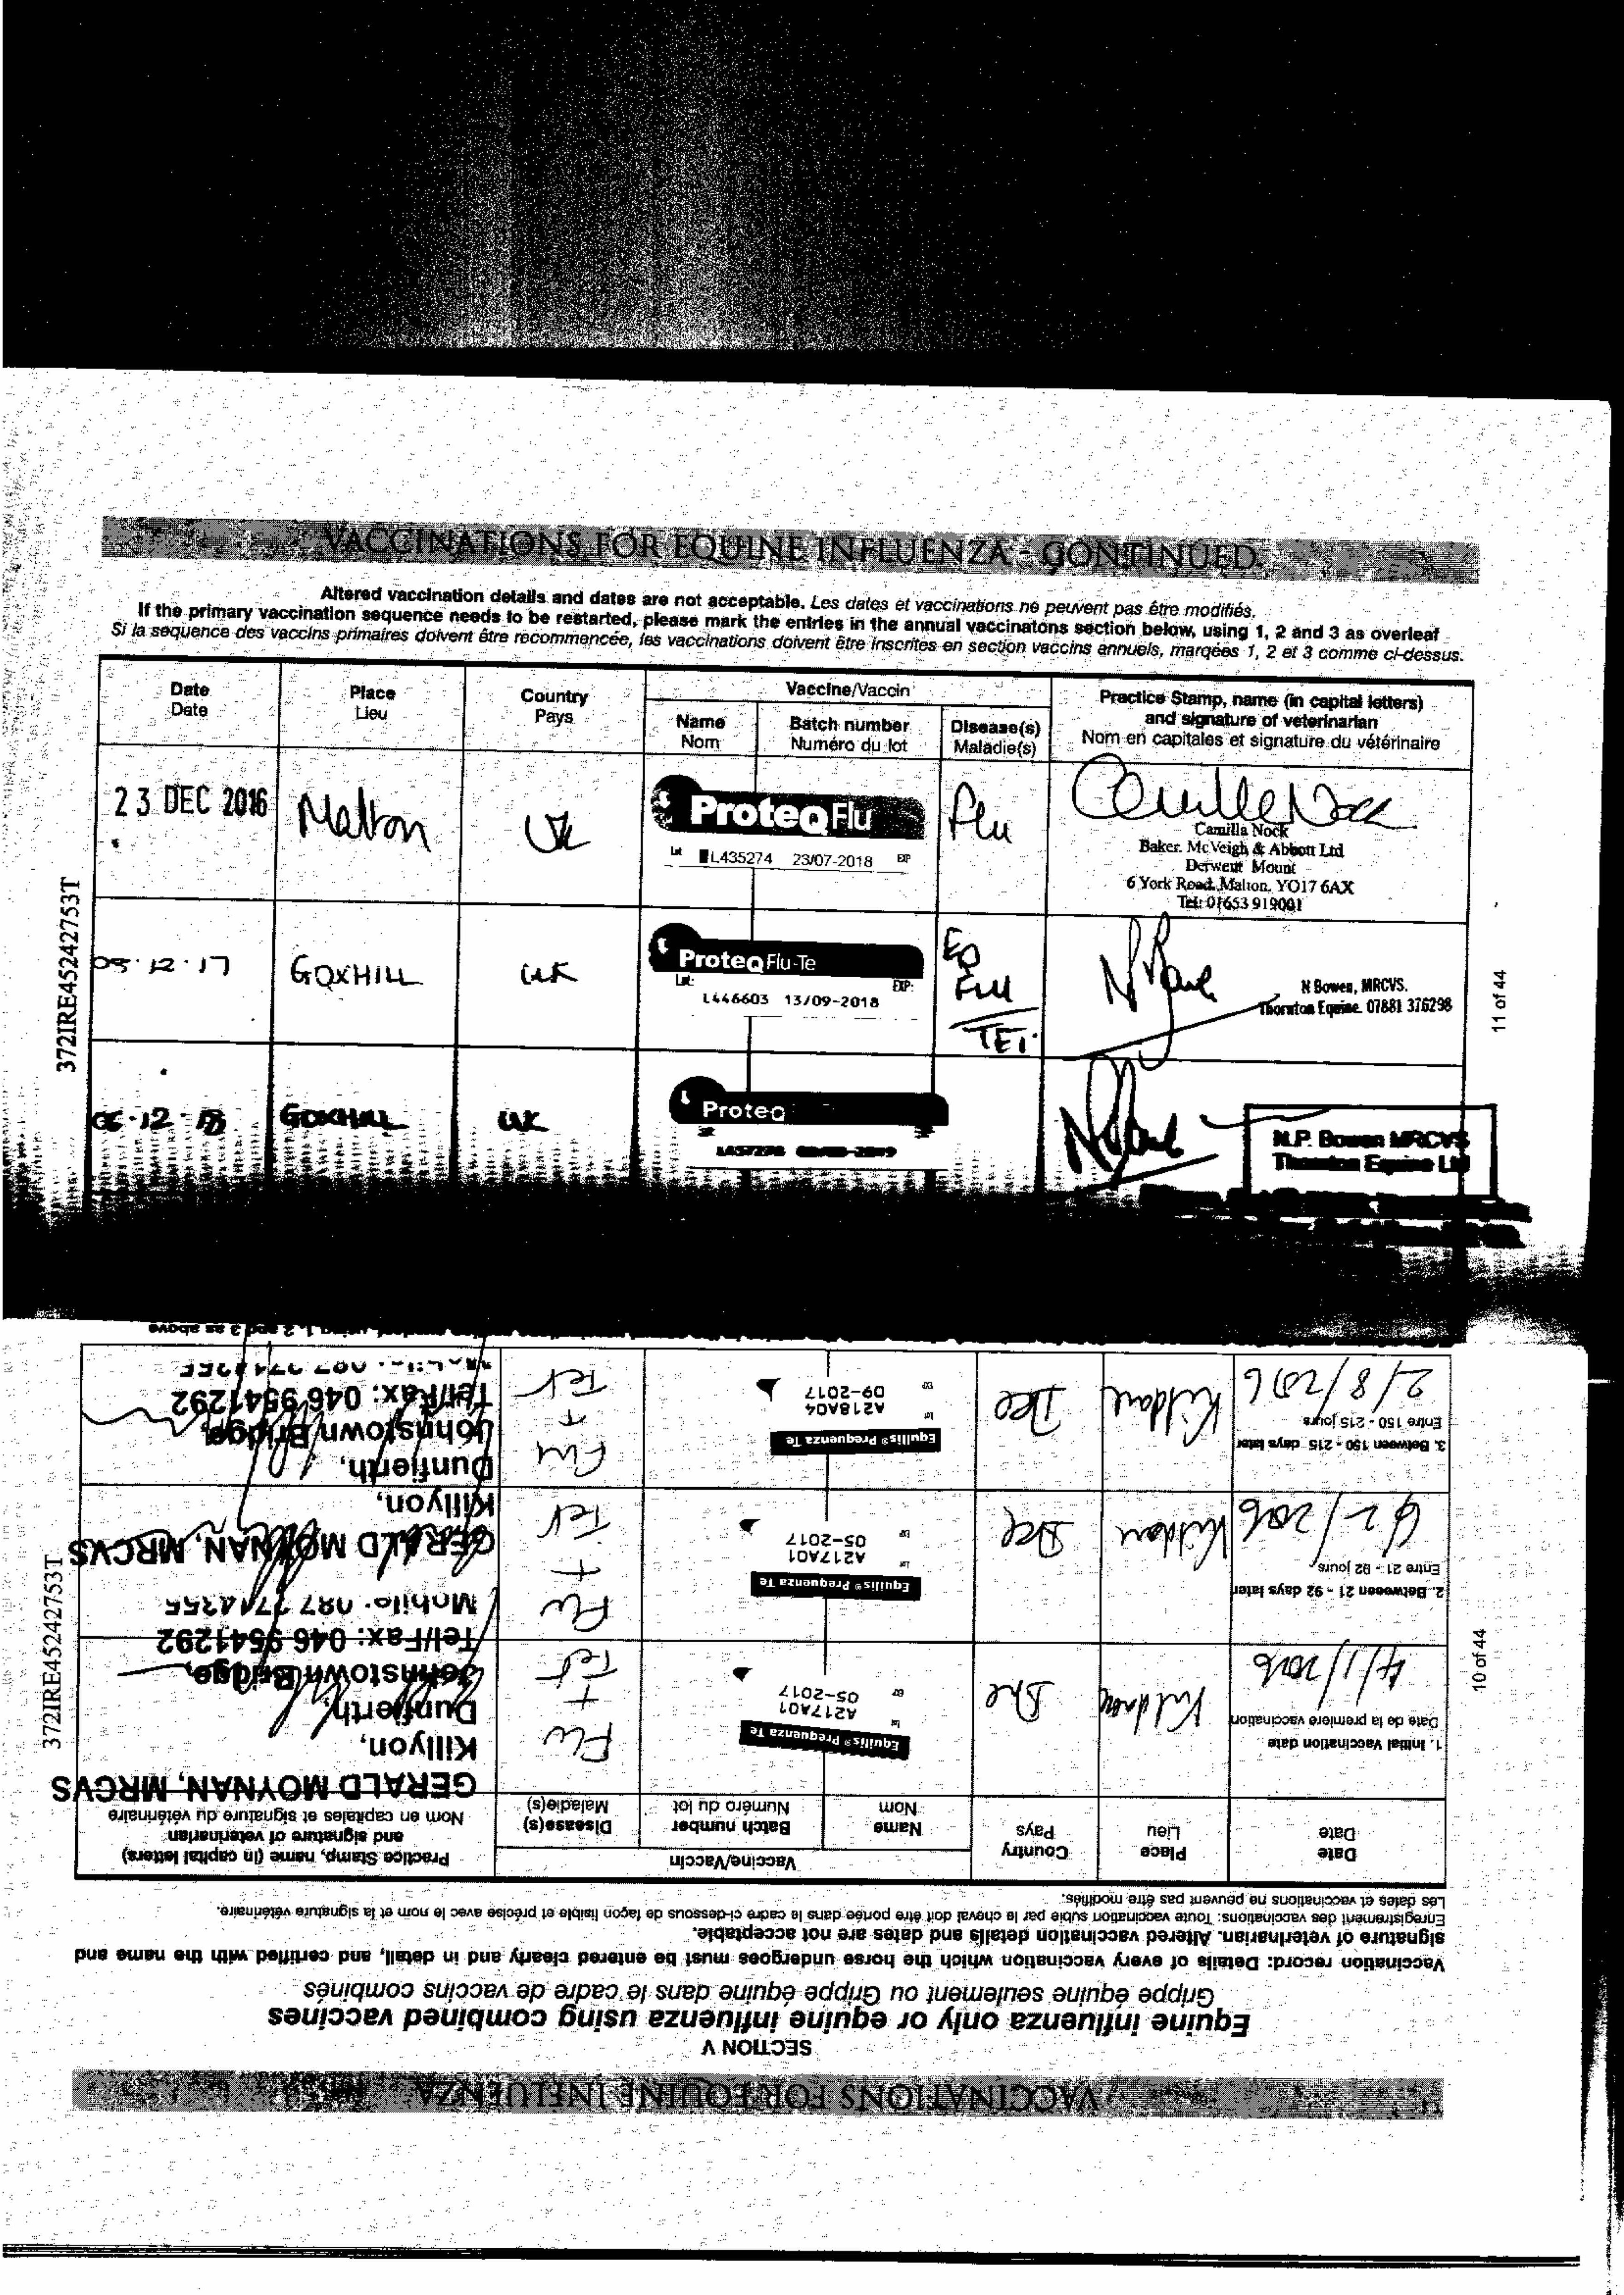 VACCINATIONS FOR EQUINE INFLUENZA - CONTINUED
Altered vaccination details and dates are not acceptable. Les dates et vaccinations ne peuvent pas être modifiés.
If the primary vaccination sequence needs to be restarted, please mark the entries in the annual vaccinatons section below, using 1, 2 and 3 as overleaf
Si la sequence des vaccins primaires doivent être recommencée, les vaccinations doivent être inscrites en section vaccins annuels, marqées 1, 2 et 3 comme ci-dessus.
Date Place Country Vaccine/Vaccin Practice Stamp, name (in capital letters)
Date Lieu Pays and signature of veterinarian
Name Batch number Disease(s)
Nom Numéro du lot Maladie(s) Nom en capitales et signature du vétérinaire
23 DEC 2016 Malton UK ProteqFlu Flu Camilla Nock
Lot L435274 23/07-2018 EXP
Camilla Nock
Baker. McVeigh & Abbott Ltd
Derwent Mount
6 York Road, Malton, YO17 6AX
Tel: 01653 919001
05.12.17 GOXHILL UK ProteqFlu-Te EQ FLU TET.
Lot: L446603 13/09-2018 EXP:
N Bowen, MRCVS.
Thornton Equine. 07881 376298
12 GOXHILL UK Proteq
N.P. Bowen MRCVS
Thornton Equine Ltd
372IRE45242753T
11 of 44
VACCINATIONS FOR EQUINE INFLUENZA
SECTION V
Equine influenza only or equine influenza using combined vaccines
Grippe équine seulement ou Grippe équine dans le cadre de vaccins combinés
Vaccination record: Details of every vaccination which the horse undergoes must be entered clearly and in detail, and certified with the name and
signature of veterinarian. Altered vaccination details and dates are not acceptable.
Enregistrement des vaccinations: Toute vaccination subie par le cheval doit être portée dans le cadre ci-dessous de façon lisible et précise avec le nom et la signature vétérinaire.
Les dates et vaccinations ne peuvent pas être modifiés.
Date Place Country Vaccine/Vaccin Practice Stamp, name (in capital letters)
Date Lieu Pays and signature of veterinarian
Name Batch number Disease(s)
Nom Numéro du lot Maladie(s) Nom en capitales et signature du vétérinaire
1. Initial Vaccination date
Date de la premiere vaccination
Kildare Equilis® Prequenza Te Flu + Tet
Lot A217A01
EXP 05-2017
GERALD MOYNAN, MRCVS
Killyon,
Dunfierth,
Johnstown Bridge,
Tel/Fax: 046 9541292
Mobile: 087
2. Between 21 - 92 days later
Entre 21 - 92 jours
Kildare Equilis® Prequenza Te Flu + Tet
Lot A217A01
EXP 05-2017
GERALD MOYNAN, MRCVS
Killyon,
Dunfierth,
Johnstown Bridge,
Tel/Fax: 046 9541292
3. Between 150 - 215 days later
Entre 150 - 215 jours
2/8/2016 Kildare Equilis® Prequenza Te Flu + Tet
Lot A218A04
EXP 09-2017
as above
372IRE45242753T
10 of 44